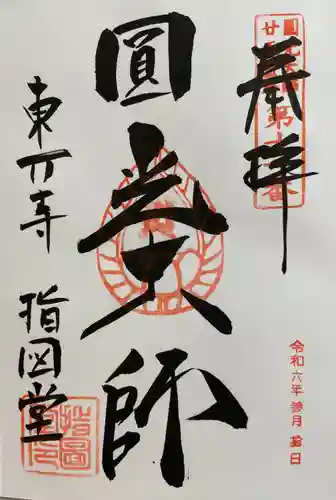 奉拝
圓光大師
東大寺
指図堂
令和六年参月 日